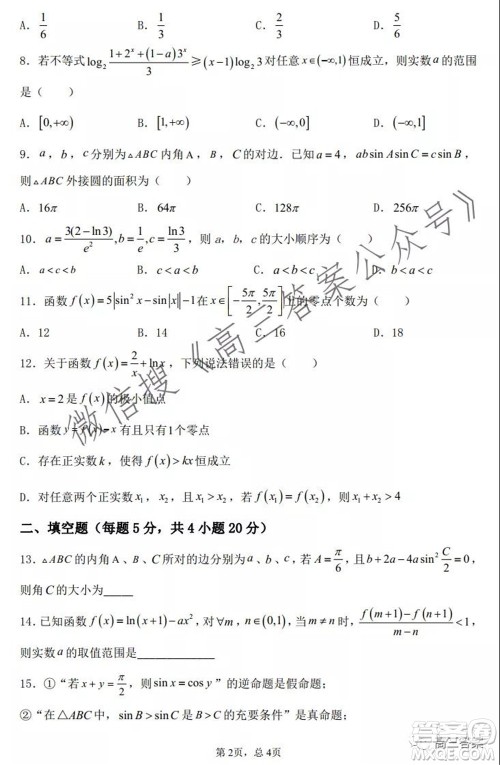 A. 1/6 B. 1/3 C. 2/3 D. 5/6
8. 若不等式 log₂ (1+2ˣ+(1-a)3ˣ)/3 ≥ (x-1)log₂3 对任意 x∈(-∞,1) 恒成立，则实数 a 的范围
是（ ）
A. [0,+∞) B. [1,+∞) C. (-∞,0] D. (-∞,1]
9. a，b，c 分别为△ABC 内角 A，B，C 的对边. 已知 a=4，ab sin A sin C = c sin B，
则△ABC 外接圆的面积为（ ）
A. 16π B. 64π C. 128π D. 256π
10. a = 3(2-ln3)/e², b = 1/e, c = ln3/3，则 a，b，c 的大小顺序为（ ）
A. a<c<b B. c<a<b C. a<b<c D. b<a<c
11. 函数 f(x)=5|sin²x-sin|x|-1 在 x∈[-5π/2, 5π/2] 上的零点个数为（ ）
A. 12 B. 14 C. 16 D. 18
12. 关于函数 f(x)=2/x+lnx，下列说法错误的是（ ）
A. x=2 是 f(x) 的极小值点
B. 函数 y=f(x)-x 有且只有1个零点
C. 存在正实数 k，使得 f(x)>kx 恒成立
D. 对任意两个正实数 x₁，x₂，且 x₁>x₂，若 f(x₁)=f(x₂)，则 x₁+x₂>4
二、填空题（每题 5 分，共 4 小题 20 分）
13. △ABC 的内角 A、B、C 所对的边分别为 a、b、c，若 A=π/6，且 b+2a-4a sin² C/2=0，
则角 C 的大小为_____
14. 已知函数 f(x)=ln(x+1)-ax²，对∀m，n∈(0,1)，当 m≠n 时，(f(m+1)-f(n+1))/(m-n)<1，
则实数 a 的取值范围是___________
15. ①“若 x+y=π/2，则 sin x=cos y”的逆命题是假命题；
②“在△ABC 中，sin B>sin C 是 B>C 的充要条件”是真命题；
第 2页，总 4页
微信搜《高三答案公众号》
高三答案